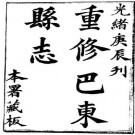 光緒庚辰刊
重修巴東
縣志
本署藏板